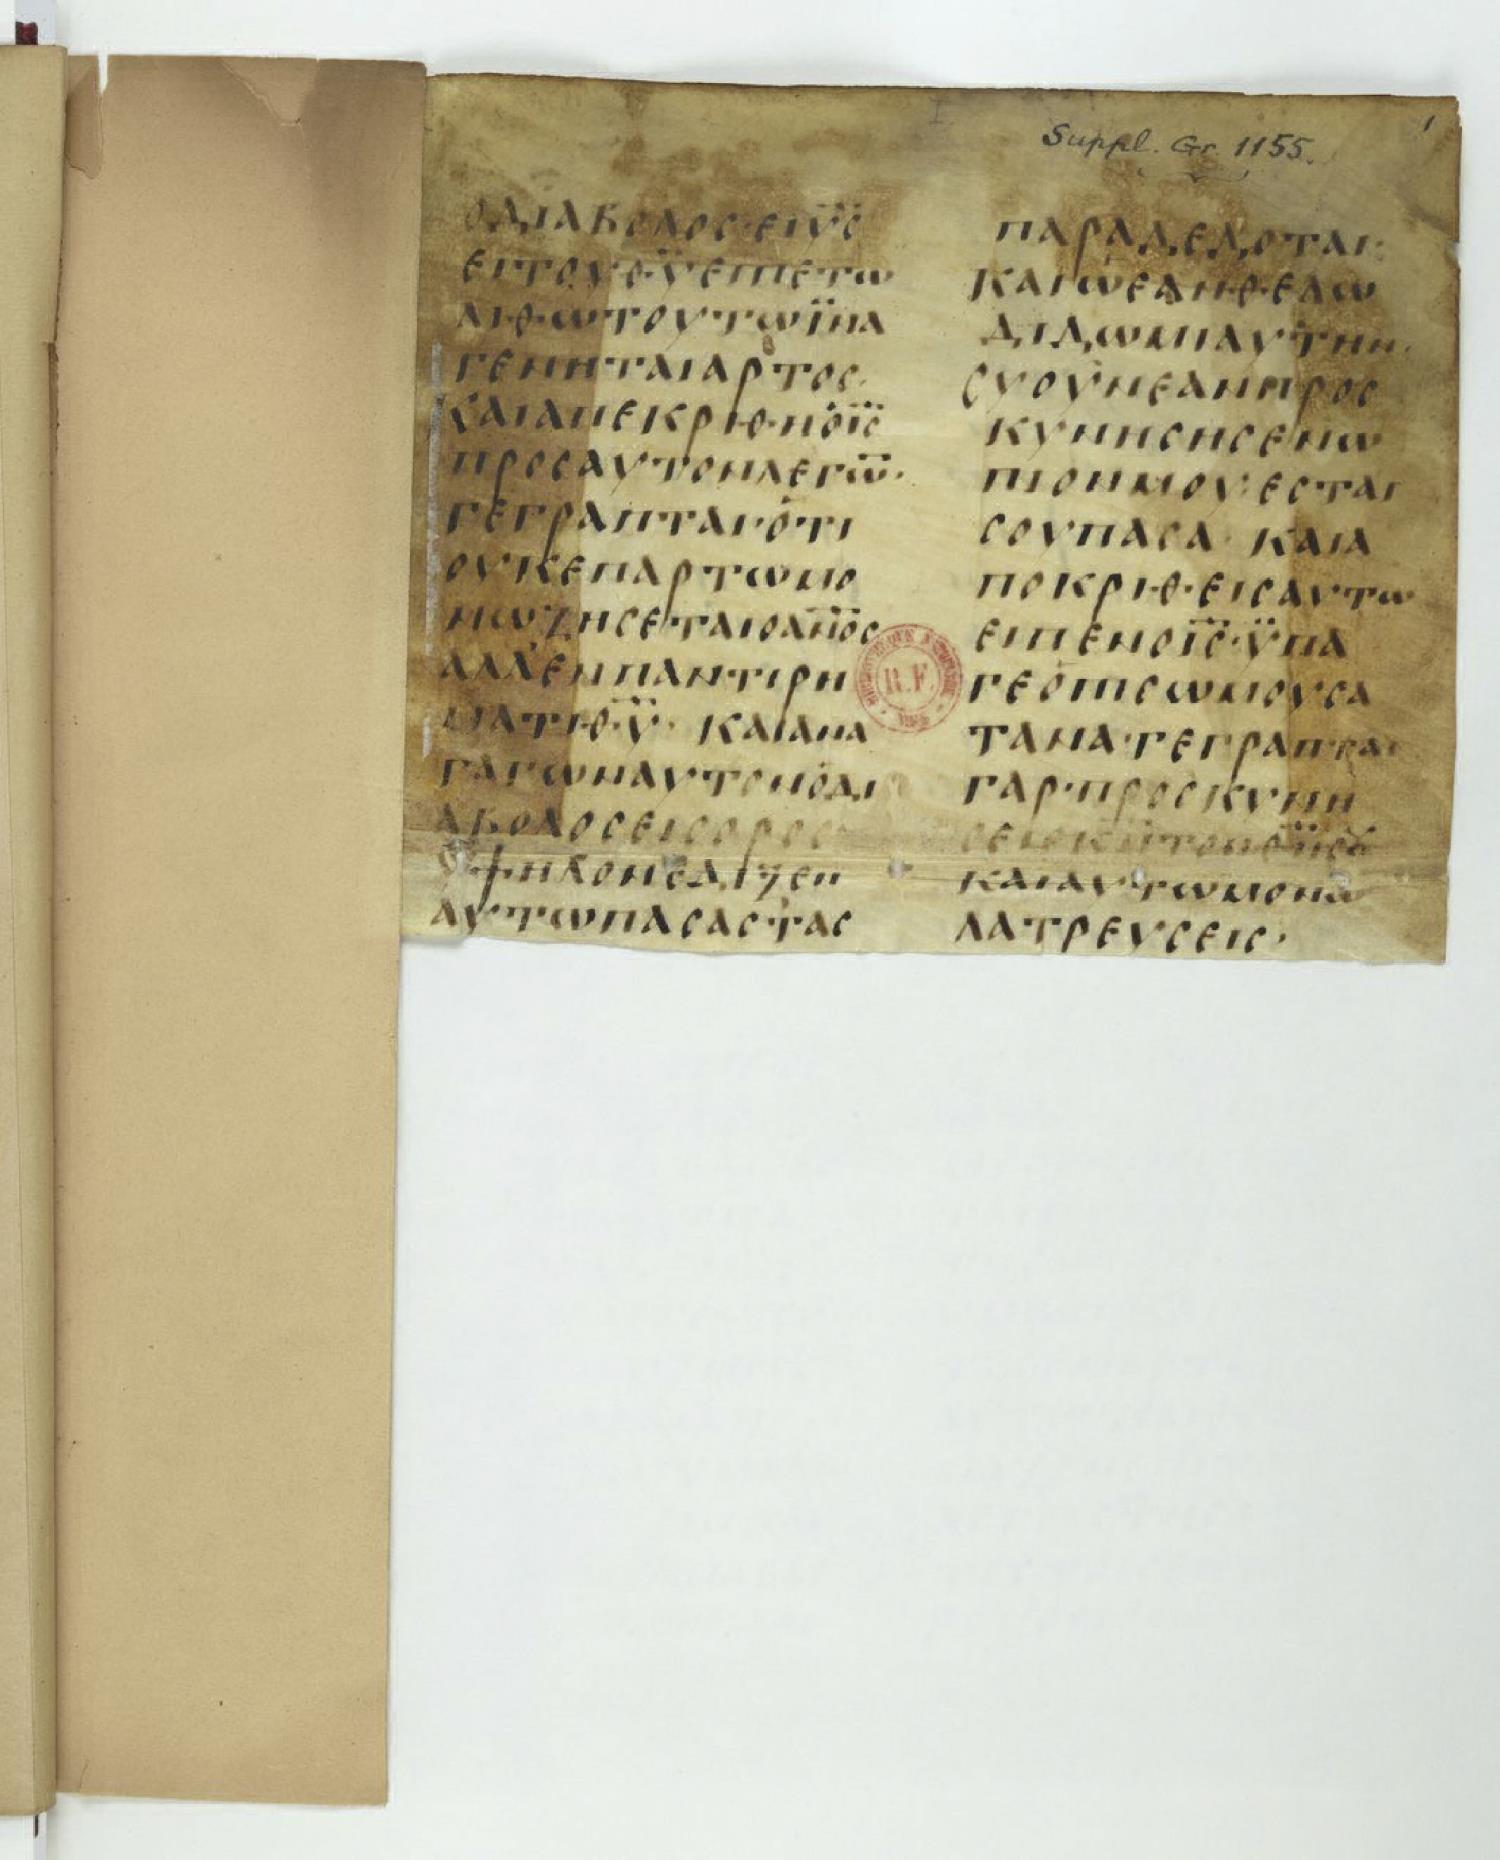 Suppl. Gr. 1155.
1
ΟΔΙΑΒΟΛΟС·ΕΙΥ̅С̅
ΕΙΤΟΥΘ̅Υ̅ΕΙΠΕΤΩ
ΛΙΘΩΤΟΥΤΩΪΝΑ
ΓΕΝΗΤΑΙΑΡΤΟС·
ΚΑΙΑΠΕΚΡΙΘΗΟΙ̅С̅
ΠΡΟСΑΥΤΟΝΛΕΓΩ̅·
ΓΕΓΡΑΠΤΑΙ·ΟΤΙ
ΟΥΚΕΠΑΡΤΩΜΟ
ΝΩΖΗСΕΤΑΙΟΑ̅Ν̅Ο̅С̅
ΑΛΛΕΝΠΑΝΤΙΡΗ
ΜΑΤΙΘ̅Υ̅· ΚΑΙΑΝΑ
ΓΑΓΩΝΑΥΤΟΝΟΔΙ
ΑΒΟΛΟСΕΙСΟΡΟС
ΫΨΗΛΟΝΕΔΙΞΕΝ
ΑΥΤΩΠΑСΑСΤΑС
ΠΑΡΑΔΕΔΟΤΑΙ·
ΚΑΙΩΕΑΝΘΕΛΩ
ΔΙΔΩΜΙΑΥΤΗΝ·
СΥΟΥΝΕΑΝΠΡΟС
ΚΥΝΗСΗСΕΝΩ
ΠΙΟΝΜΟΥ·ΕСΤΑΙ
СΟΥΠΑСΑ· ΚΑΙΑ
ΠΟΚΡΙΘΕΙСΑΥΤΩ
ΕΙΠΕΝΟΙ̅С̅·ΫΠΑ
ΓΕΟΠΙСΩΜΟΥСΑ
ΤΑΝΑ·ΓΕΓΡΑΠΤΑΙ
ΓΑΡ·ΠΡΟСΚΥΝΗ
ΚΑΙΑΥΤΩΜΟΝΩ
ΛΑΤΡΕΥСΕΙС·
R.F.